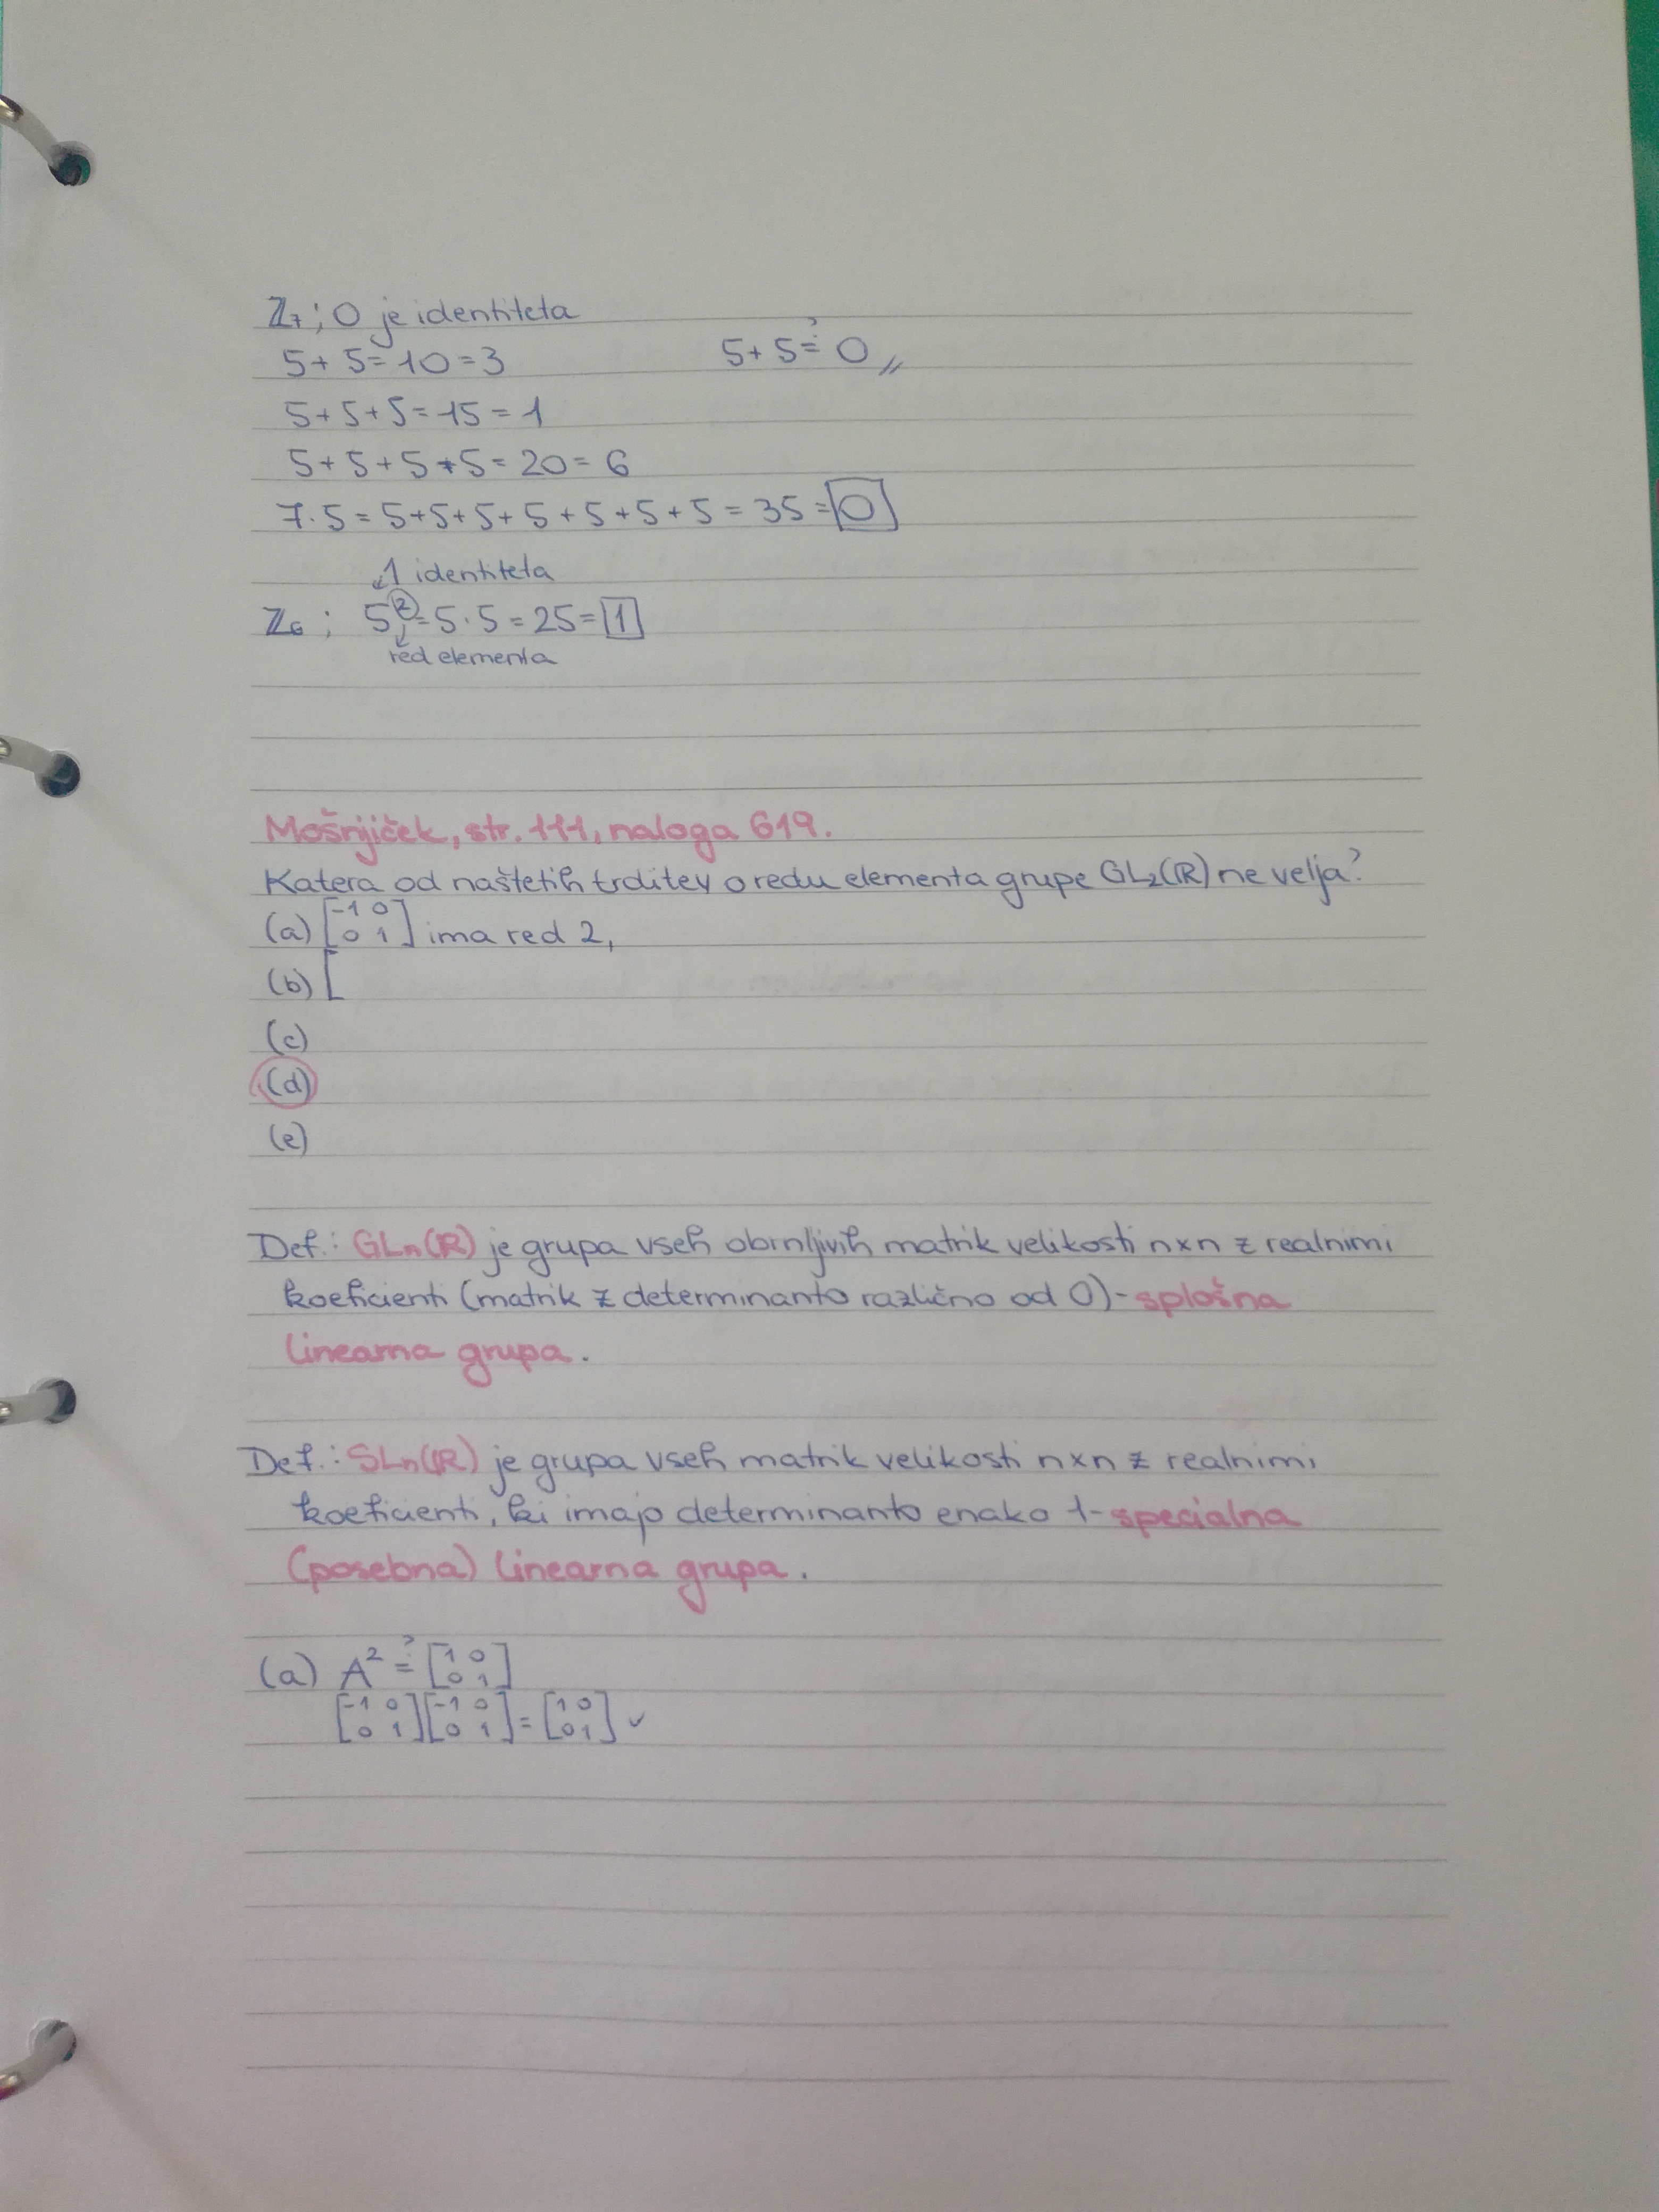 ℤ₇; 0 je identiteta
5+5=10=3 5+5≟0
5+5+5=15=1
5+5+5+5=20=6
7·5=5+5+5+5+5+5+5=35=0
1 identiteta
ℤ₆; 5²=5·5=25=1
red elementa
Mošnjiček, str. 111, naloga 619.
Katera od naštetih trditev o redu elementa grupe GL₂(ℝ) ne velja?
(a) [-1 0; 0 1] ima red 2,
(b) [
(c)
(d)
(e)
Def.: GLₙ(ℝ) je grupa vseh obrnljivih matrik velikosti n×n z realnimi
koeficienti (matrik z determinanto različno od 0)-splošna
linearna grupa.
Def.: SLₙ(ℝ) je grupa vseh matrik velikosti n×n z realnimi
koeficienti, ki imajo determinanto enako 1-specialna
(posebna) linearna grupa.
(a) A² ≟ [1 0; 0 1]
[-1 0; 0 1][-1 0; 0 1]=[1 0; 0 1] ✓